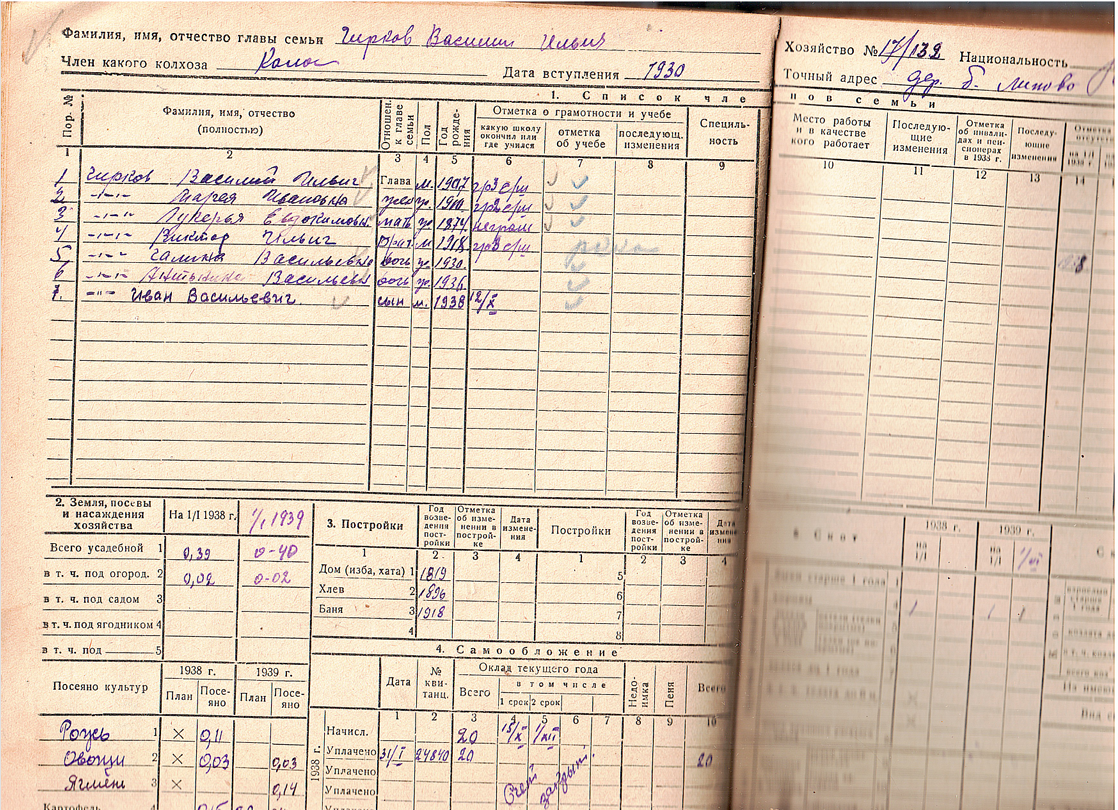 Фамилия, имя, отчество главы семьи Чирков Василий Ильич
Член какого колхоза Колос Дата вступления 1930
Хозяйство № 17/132 Национальность
Точный адрес дер. б. Липово
1. Список чле
нов семьи
Пор. № Фамилия, имя, отчество (полностью) Отношен. к главе семьи Пол Год рождения Отметка о грамотности и учебе Специльность
какую школу окончил или где учился отметка об учебе последующ. изменения
Место работы и в качестве кого работает Последующие изменения Отметка об инвалидах и пенсионерах в 1938 г. Последующие изменения
1 2 3 4 5 6 7 8 9 10 11 12 13 14
1 Чирков Василий Ильич Глава м. 1907 гр 3
2 -"- Мария Ивановна жена ж. 1910 гр
3 -"- Лукерья Евдокимовн. мать ж. 1874 неграм
4 -"- Виктор Ильич брат м 1918 гр 3
5 -"- Галина Васильевна дочь ж. 1930.
6 -"- Васильевн дочь ж. 1936.
7. -"- Иван Васильевич. сын м. 1938 12/X
2. Земля, посевы и насаждения хозяйства На 1/I 1938 г. 1/I 1939
Всего усадебной 1 0,39 0-40
в т. ч. под огород. 2 0,02 0-02
в т. ч. под садом 3
в т. ч. под ягодником 4
в т. ч. под 5
3. Постройки Год возведения постройки Отметка об изменении в постройке Дата изменения Постройки Год возведения постройки Отметка об изменении в постройке Дата изменен
1 2 3 4 1 2 3 4
Дом (изба, хата) 1 1819 5
Хлев 2 1896 6
Баня 3 1918 7
4 8
4. Самообложение
Посеяно культур 1938 г. 1939 г.
План Посеяно План Посеяно
Рожь 1 × 0,11
Овощи 2 × 0,03 0,03
Ячмень 3 × 0,14
Картофель 4
Дата № квитанц. Оклад текущего года Недоимка Пеня Всего
Всего в том числе
1 срок 2 срок
1 2 3 4 5 6 7 8 9 10
1938 г.
Начисл. 20 15/X 1/XII
Уплачено 31/I 24840 20 20
Уплачено Счет закрыт.
Уплачено
Уплачено
Скот
1938 г. 1939 г.
на 1/I на 1/I 1/VI
старше 1 года